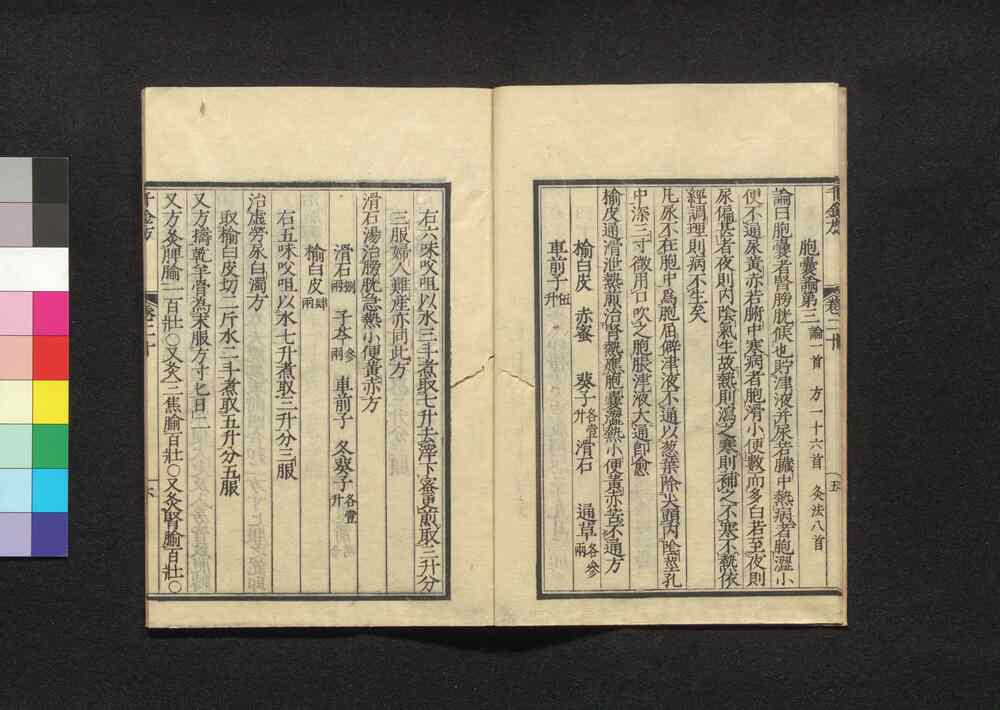 千金方 卷二十 五
胞囊論第三 論一首 方一十六首 灸法八首
論曰胞囊者腎膀胱候也貯津液并尿若臟中熱病者胞澀小
便不通尿黃赤若腑中寒病者胞滑小便數而多白若至夜則
尿偏甚者夜則內陰氣生故熱則瀉之寒則補之不寒不熱依
經調理則病不生矣
凡尿不在胞中爲胞屈僻津液不通以葱葉除尖頭內陰莖孔
中深三寸微用口吹之胞脹津液大通卽愈
榆皮通滑泄熱煎治腎熱應胞囊澀熱小便黃赤苦不通方
榆白皮 赤蜜 葵子各壹升 滑石 通草各參兩
車前子伍升
右六味㕮咀以水三斗煮取七升去滓下蜜更煎取三升分
三服婦人難產亦同此方
滑石湯治膀胱急熱小便黃赤方
滑石捌兩 子芩參兩 車前子 冬葵子各壹升
榆白皮肆兩
右五味㕮咀以水七升煮取三升分三服
治虛勞尿白濁方
取榆白皮切二斤水二斗煮取五升分五服
又方擣乾羊骨爲末服方寸匕日二
又方灸脾腧一百壯○又灸三焦腧百壯○又灸腎腧百壯○
千金方 卷二十 六